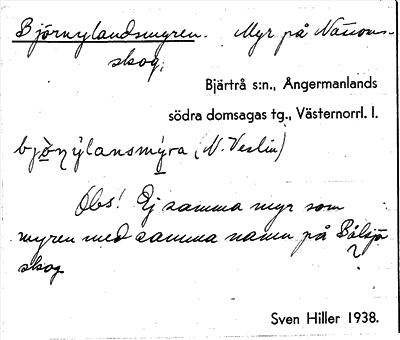 Björnylandsmyren. Myr på Nässoms-
skog,
Bjärtrå s:n., Ångermanlands
södra domsagas tg., Västernorrl. l.
bjö̀ṇýlansmýra (N. Veslin)
Obs! Ej samma myr som
myren med samma namn på Bålsjö
skog
Sven Hiller 1938.